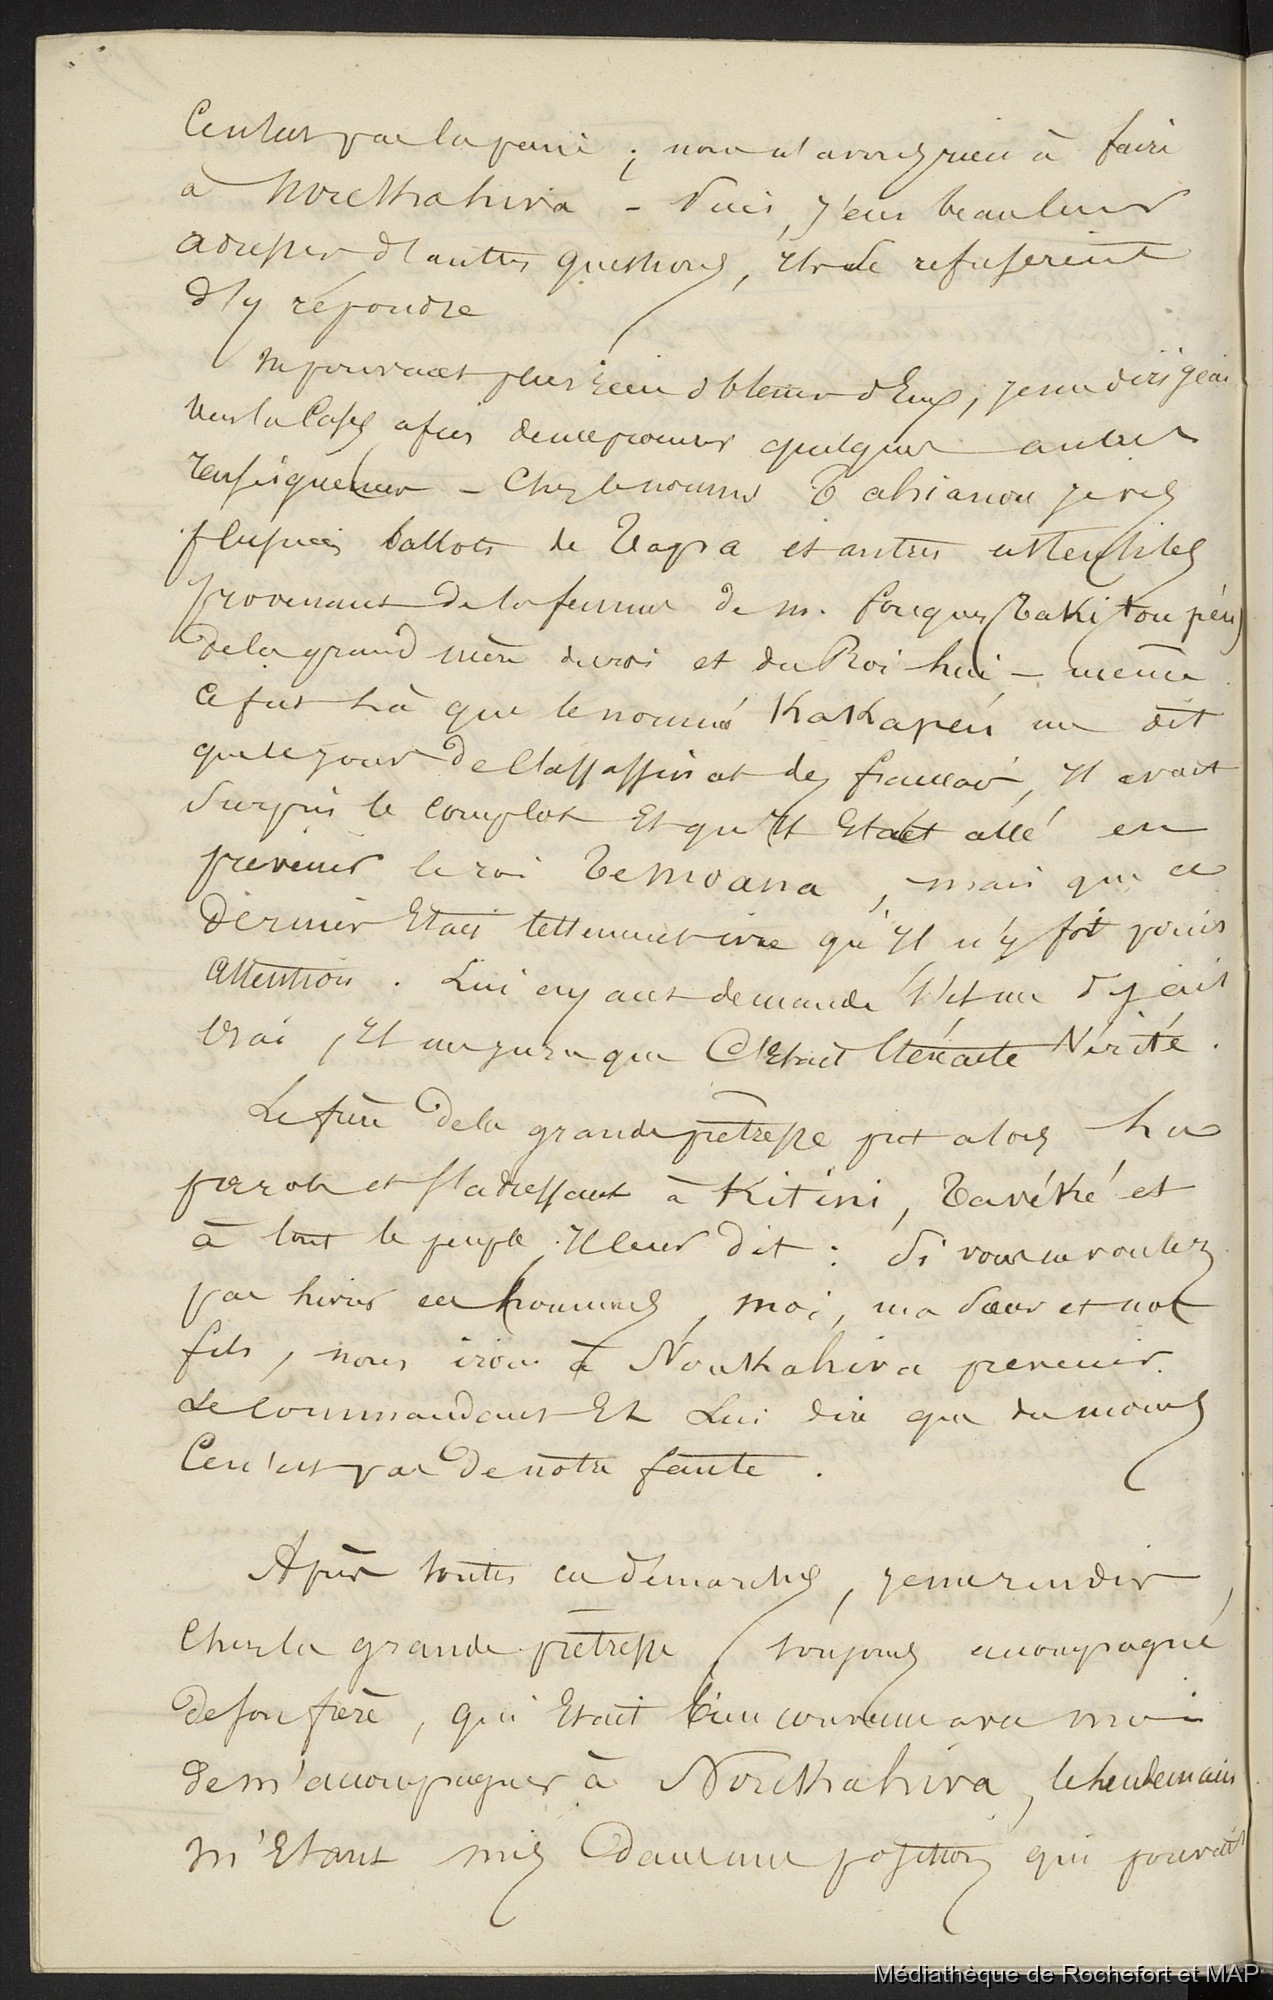 Ce n'est pas la peine ; nous n'avons rien à faire
à Noukahiva - Puis, j'eus beau leur
adresser d'autres questions, ils se refuserent
d'y répondre
Ne pouvant plus rien obtenir d'Eux, je me dirigeai
vers la Case, afin de me procurer quelques autres
renseignemens - Chez le nommé Tahianou je vis
plusieurs ballots de Tapa et autres ustensiles
provenant de la femme de M. Fouques (Takitoupéü)
de la grand mère du roi et du Roi lui-même
Ce fut là que le nommé Kakapeü me dit
que le jour de l'assassinat des français, Il avait
Surpris le complot Et qu'Il Etait allé en
prévenir le roi Temoana, mais que ce
dernier Etait tellement ivre qu'Il n'y fit point
attention. Lui ayant demandé s'Il me disait
vrai, Il me jura que C'Etait l'éxacte Vérité.
Le frère de la grande prêtresse prit alors la
parole et s'adressant à Kitini, Tavéké et
à tout le peuple Il leur dit : Si vous ne voulez
pas livrer ces hommes, moi, ma Sœur et nos
fils, nous irons à Noukahiva prevenir
Le Commandant Et Lui dire que du moins
Ce n'est pas de notre faute.
Après toutes ces démarches, je me rendis
Chez la grande prêtresse, toujours accompagné
de son frère, qui Etait bien convenu avec moi
de m'accompagner à Noukahiva, le lendemain
M'Etant mis dans une position qui pouvait
Médiathèque de Rochefort et MAP